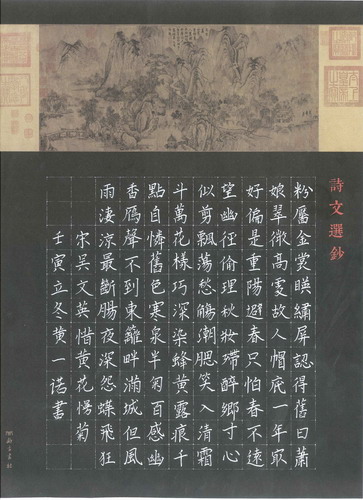 詩文選鈔
粉靨金裳暎繡屏認得舊日蕭
娘翠微高處故人帽底一年最
好偏是重陽避春只怕春不遠
望幽徑偷理秋妝殢醉鄉寸心
似剪飄蕩愁觴潮腮笑入清霜
斗萬花樣巧深染蜂黄露痕千
點自憐舊色寒泉半匊百感幽
香雁聲不到東籬畔滿城但風
雨淒涼最斷腸夜深怨蝶飛狂
宋吳文英惜黃花慢菊
壬寅立冬黄一諾書